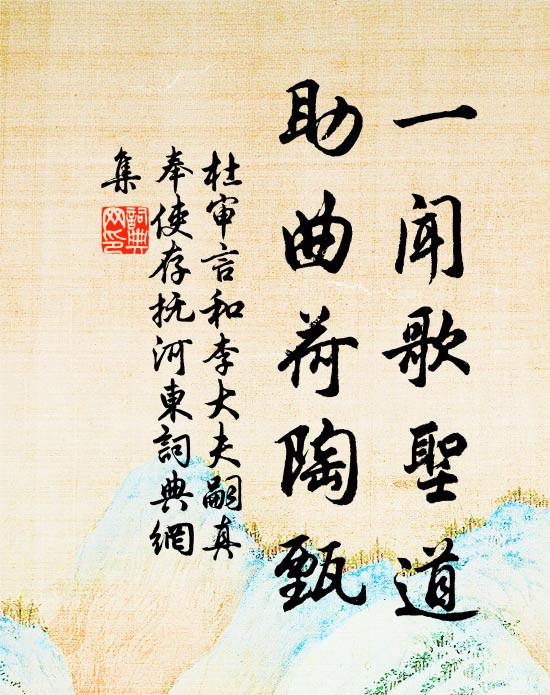 一闻歌聖道
助曲荷陶甄
杜审言和李大夫嗣真
奉使存抚河東詞典網
集
詞典网印